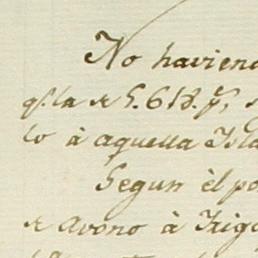 No haviend
q.e la de S. 618. y,
to à aquella Isla
Segun èl po
de Avono à Trigo